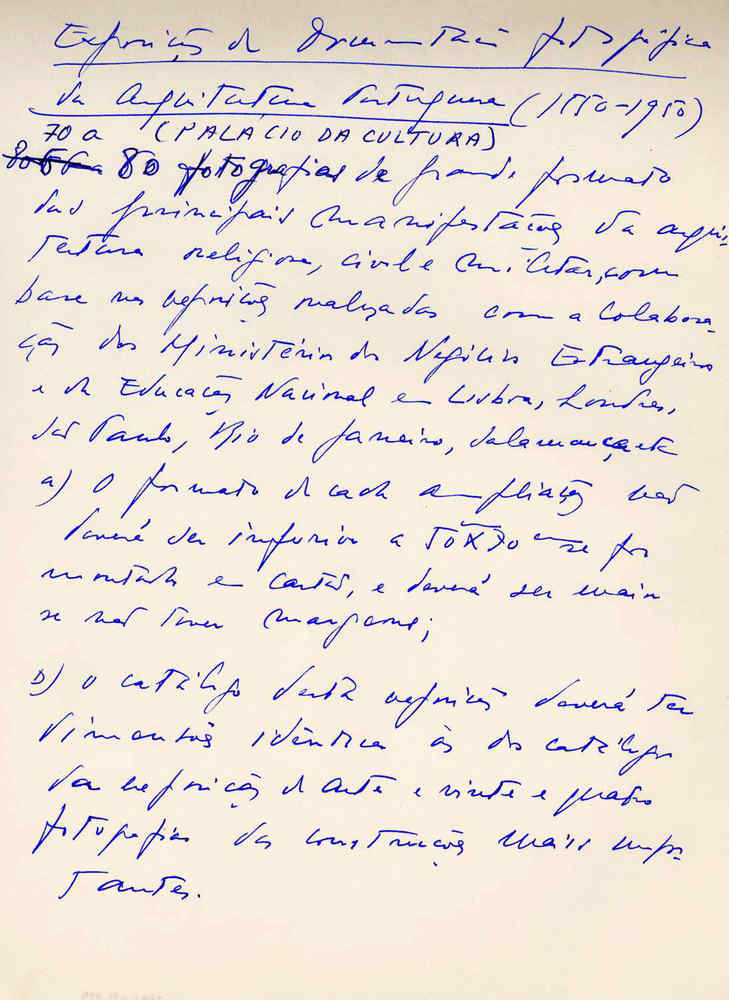 Exposição de Documentação fotográfica
da Arquitectura Portuguesa (1550-1950)
70 a (PALÁCIO DA CULTURA)
80 fotografias de grande formato
das principais manifestações da arqui-
tectura religiosa, civil e militar, com
base nas exposições realizadas com a colabora-
ção dos Ministério dos Negócios Estrangeiros
e da Educação Nacional em Lisboa, Londres,
São Paulo, Rio de Janeiro, Salamanca, etc
a) O formato de cada ampliação não
deverá ser inferior a 50x70 cm se for
montada em cartão, e deverá ser maior
se não tiver margens;
b) O catálogo desta exposição deverá ter
dimensões idêntica às do catálogo
da exposição de arte e vinte e quatro
fotografias das construções mais impor-
tantes.